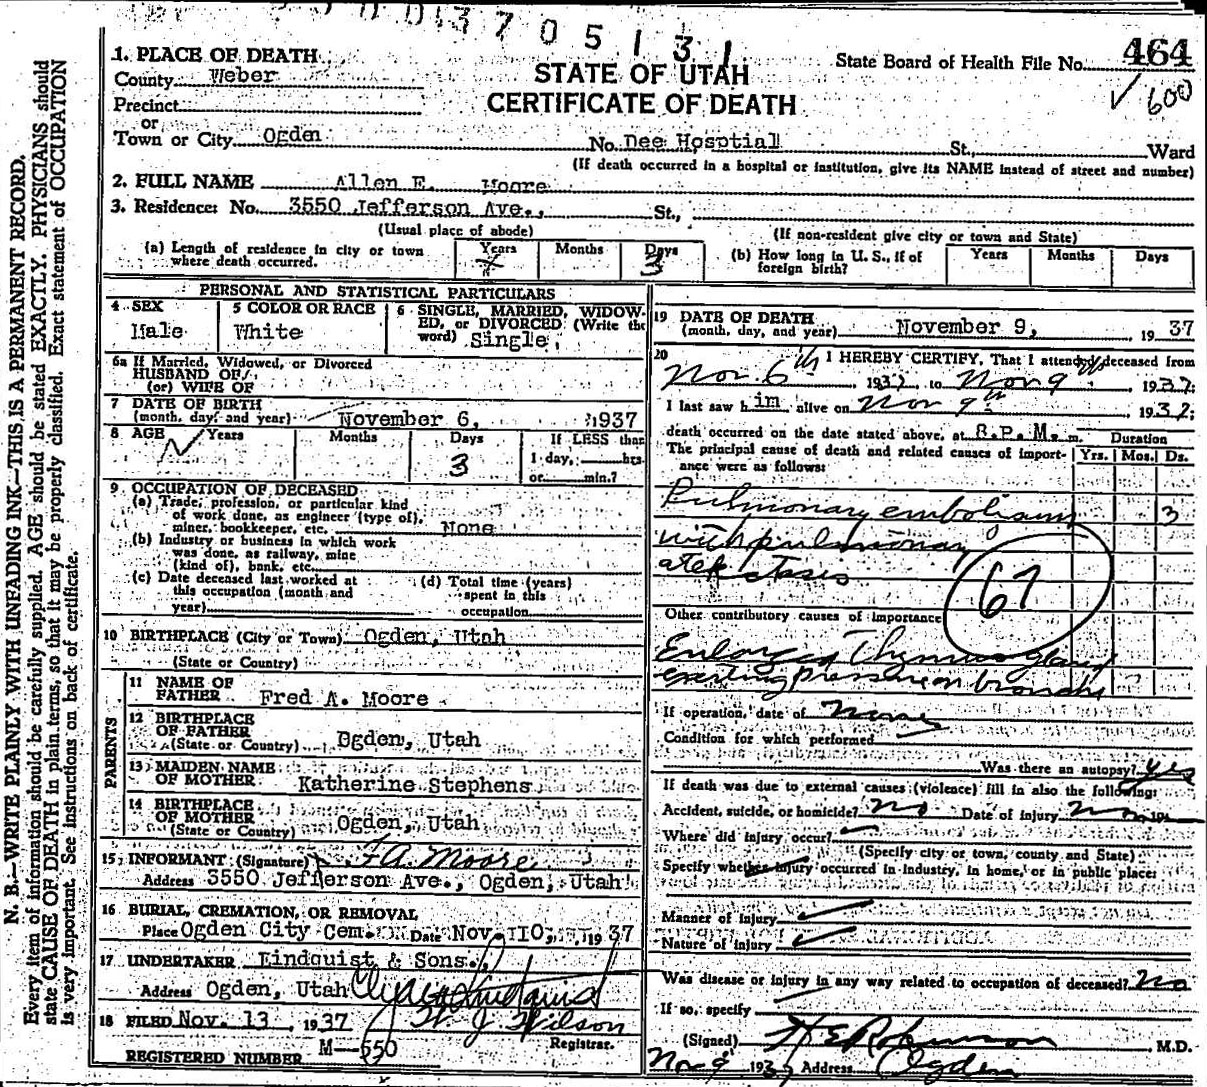 3 7 0 5 1 3 1
1. PLACE OF DEATH
County Weber
Precinct
or
Town or City Ogden
STATE OF UTAH
CERTIFICATE OF DEATH
State Board of Health File No. 464
600
No. Dee Hosptial St., Ward
(If death occurred in a hospital or institution, give its NAME instead of street and number)
2. FULL NAME Allen E. Moore
3. Residence: No. 3550 Jefferson Ave., St.,
(Usual place of abode) (If non-resident give city or town and State)
(a) Length of residence in city or town where death occurred. Years Months Days 3
(b) How long in U. S., if of foreign birth? Years Months Days
PERSONAL AND STATISTICAL PARTICULARS
4 SEX Male
5 COLOR OR RACE White
6 SINGLE, MARRIED, WIDOWED, or DIVORCED (Write the word) Single
6a If Married, Widowed, or Divorced
HUSBAND OF
(or) WIFE OF
7 DATE OF BIRTH
(month, day, and year) November 6, 1937
8 AGE Years Months Days 3 If LESS than
1 day, hrs.
or min.?
9 OCCUPATION OF DECEASED
(a) Trade, profession, or particular kind
of work done, as engineer (type of),
miner, bookkeeper, etc. None
(b) Industry or business in which work
was done, as railway, mine
(kind of), bank, etc.
(c) Date deceased last worked at
this occupation (month and
year)
(d) Total time (years)
spent in this
occupation
10 BIRTHPLACE (City or Town) Ogden, Utah
(State or Country)
PARENTS
11 NAME OF
FATHER Fred A. Moore
12 BIRTHPLACE
OF FATHER
(State or Country) Ogden, Utah
13 MAIDEN NAME
OF MOTHER Katherine Stephens
14 BIRTHPLACE
OF MOTHER
(State or Country) Ogden, Utah
15 INFORMANT (Signature) F A. Moore
Address 3550 Jefferson Ave., Ogden, Utah
16 BURIAL, CREMATION, OR REMOVAL
Place Ogden City Cem. Date Nov. 10, 1937
17 UNDERTAKER Lindquist & Sons.
Address Ogden, Utah
18 FILED Nov. 13, 1937 Wilson
Registrar.
REGISTERED NUMBER M-550
19 DATE OF DEATH
(month, day, and year) November 9, 1937
20 I HEREBY CERTIFY, That I attended deceased from
Nov. 6th, 1937, to Nov 9, 1937;
I last saw him alive on Nov 9th 1937;
death occurred on the date stated above, at 8.P.M. m.
The principal cause of death and related causes of importance were as follows:
Duration
Yrs. Mos. Ds.
Pulmonary embolism 3
with pulmonary
atelectasis
67
Other contributory causes of importance
Enlarged Thymus gland
exerting pressure on bronchi
If operation, date of None
Condition for which performed
Was there an autopsy? yes
If death was due to external causes (violence) fill in also the following:
Accident, suicide, or homicide? No Date of injury
Where did injury occur?
(Specify city or town, county and State)
Specify whether injury occurred in industry, in home, or in public place:
Manner of injury
Nature of injury
Was disease or injury in any way related to occupation of deceased? No
If so, specify
(Signed) M.D.
Nov 9 1937 Address Ogden
N. B.—WRITE PLAINLY WITH UNFADING INK—THIS IS A PERMANENT RECORD.
Every item of information should be carefully supplied. AGE should be stated EXACTLY. PHYSICIANS should
state CAUSE OF DEATH in plain terms, so that it may be properly classified. Exact statement of OCCUPATION
is very important. See instructions on back of certificate.